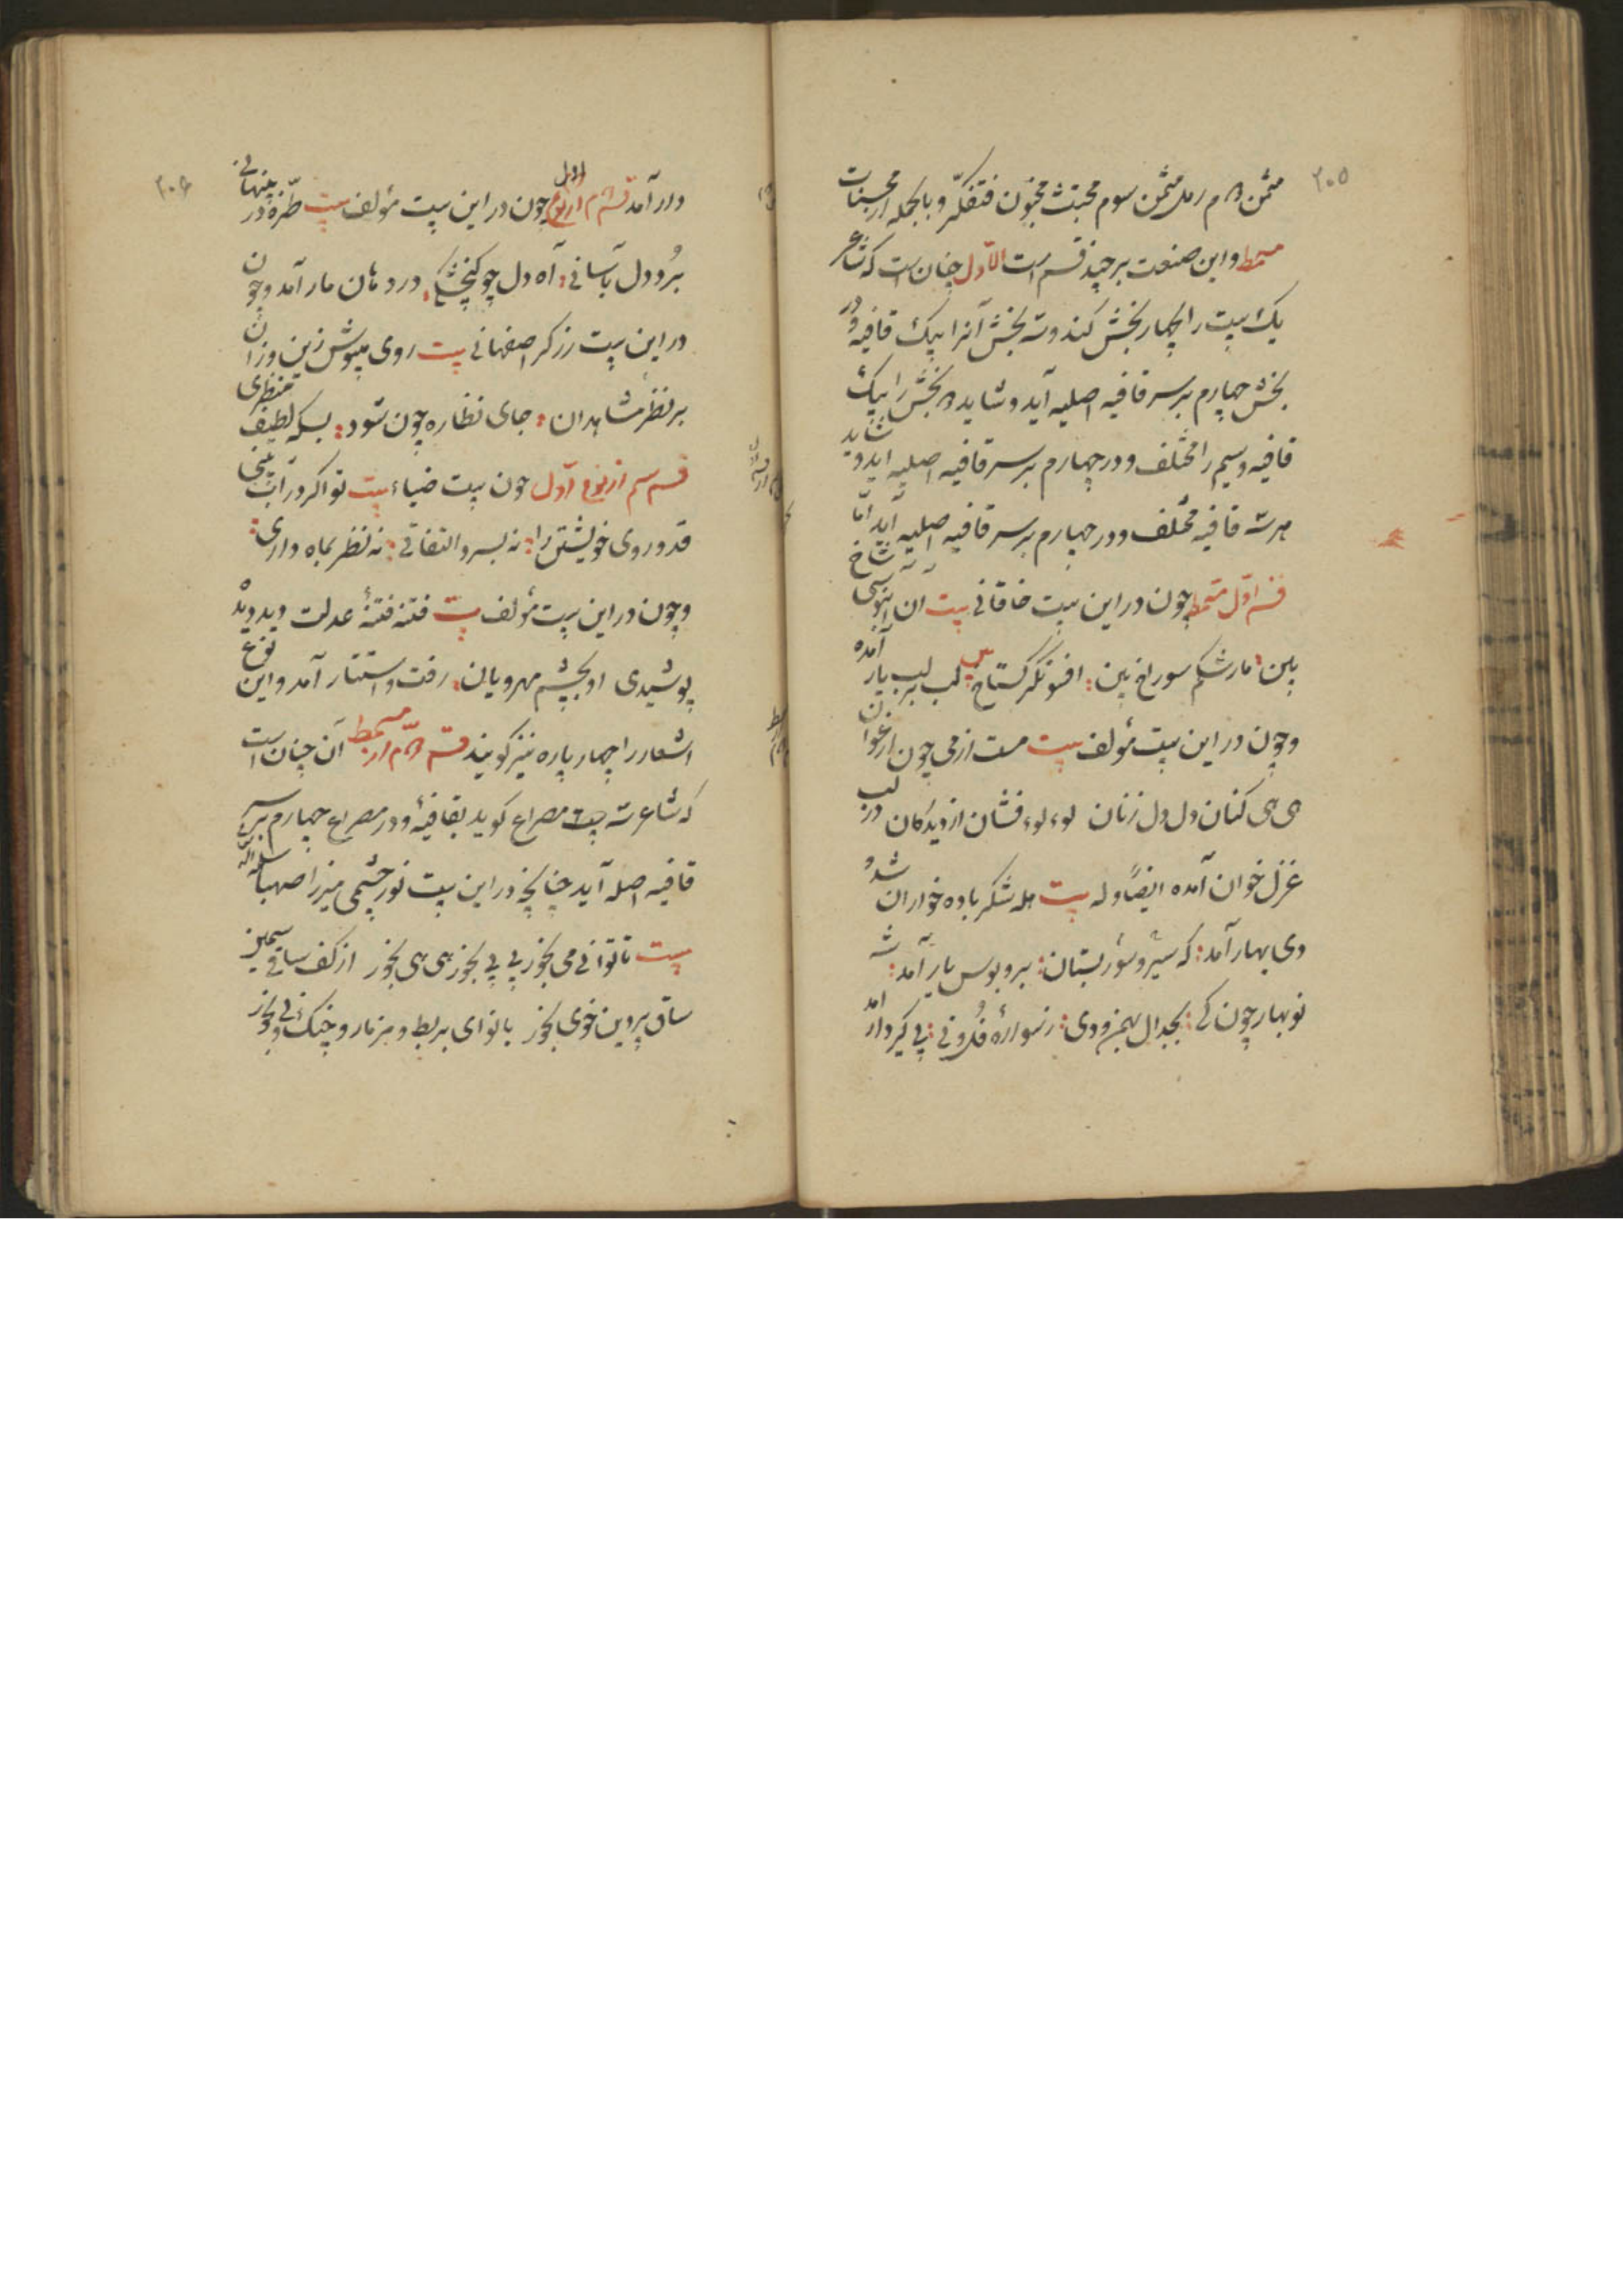 ۲۰۵
مثمن دوم رمل مثمن سوم مجتث مخبون فتفکّر و بالجمله از محسنات
مسمط و این صنعت بر چند قسم است الاوّل چنان است که شاعر
یک بیت را بچهار بخش کند و سه بخش آنرا بیک قافیه و در
بخش چهارم بر سر قافیه اصلیه آید و شاید دو بخش را بیک
قافیه و سیم را مختلف و در چهارم بر سر قافیه اصلیه آید و شاید
هر سه قافیه مختلف و در چهارم بر سر قافیه اصلیه آید امّا
قسم اوّل مسمط چون در این بیت خاقانی بیت آن آبنوسی شاخ
بین مار شکم سوراخ بین افسونگر گستاخ بین لب بر لب یار آمده
و چون در این بیت مؤلف بیت مست از می چون ارغوان
هی هی کنان دل دل زنان لوء لوء فشان از دیدگان در لب
غزل خوان آمده ایضاً وله بیت هله شکر باده خواران شد و
دی بهار آمد که سیر و سور بستان ببر و بوس یار آمد شه
نوبهار چون کی بجدال بهمن و دی ز سواره فزونی پی گیر و دار آمد
۲۰۶
دار آمد قسم دوم از نوع اول چون در این بیت مؤلف بیت طرّه در پنهانی
بُرد دل بآسانی آه دل چو گنجشکی در دهان مار آمد و چون
در این بیت زرگر اصفهانی بیت روی مپوش زین و زان
بر نظر مشاهدان جای نظاره چون شود بسکه لطیف منظری
قسم سیم از نوع اوّل چون بیت ضیاء بیت تو اگر در آب بینی
قد و روی خویشتن را نه بسرو التفاتی نه نظر بماه داری
و چون در این بیت مؤلف بیت فتنه فتنهٔ عدلت دید دیده
پوشیدی او بچشم مهرویان رفت و استتار آمد و این نوع
اشعار را چهار پاره نیز گویند قسم دوّم از مسمط آن چنان است
که شاعر سه مصراع گوید بقافیهٔ و در مصراع چهارم بر سر
قافیه اصله آید چنانچه در این بیت نور چشمی میرزا صهبا سلمه الله
بیت تا توانی می بخور پی پی بخور هی هی بخور از کف ساقی سیمین
ساق پروین خوی بخور با نوای بربط و مزمار و چنگ و نی بخور